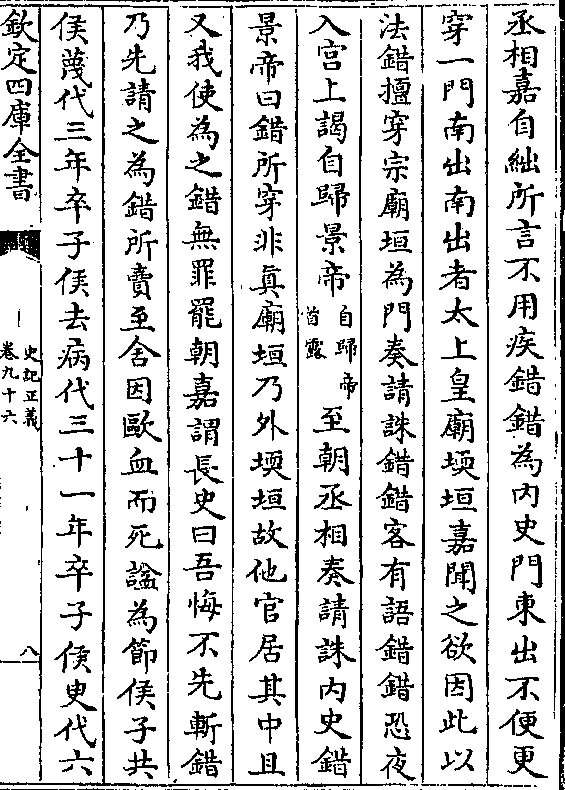 丞相嘉自絀所言不用疾錯錯為內史門東出不便更
穿一門南出南出者太上皇廟堧垣嘉聞之欲因此以
法錯擅穿宗廟垣為門奏請誅錯錯客有語錯錯恐夜
入宮上謁自歸景帝自歸帝首露至朝丞相奏請誅內史錯
景帝曰錯所穿非真廟垣乃外堧垣故他官居其中且
又我使為之錯無罪罷朝嘉謂長史曰吾悔不先斬錯
乃先請之為錯所賣至舍因歐血而死諡為節侯子共
侯蔑代三年卒子侯去病代三十一年卒子侯臾代六
欽定四庫全書
史記正義
卷九十六
八